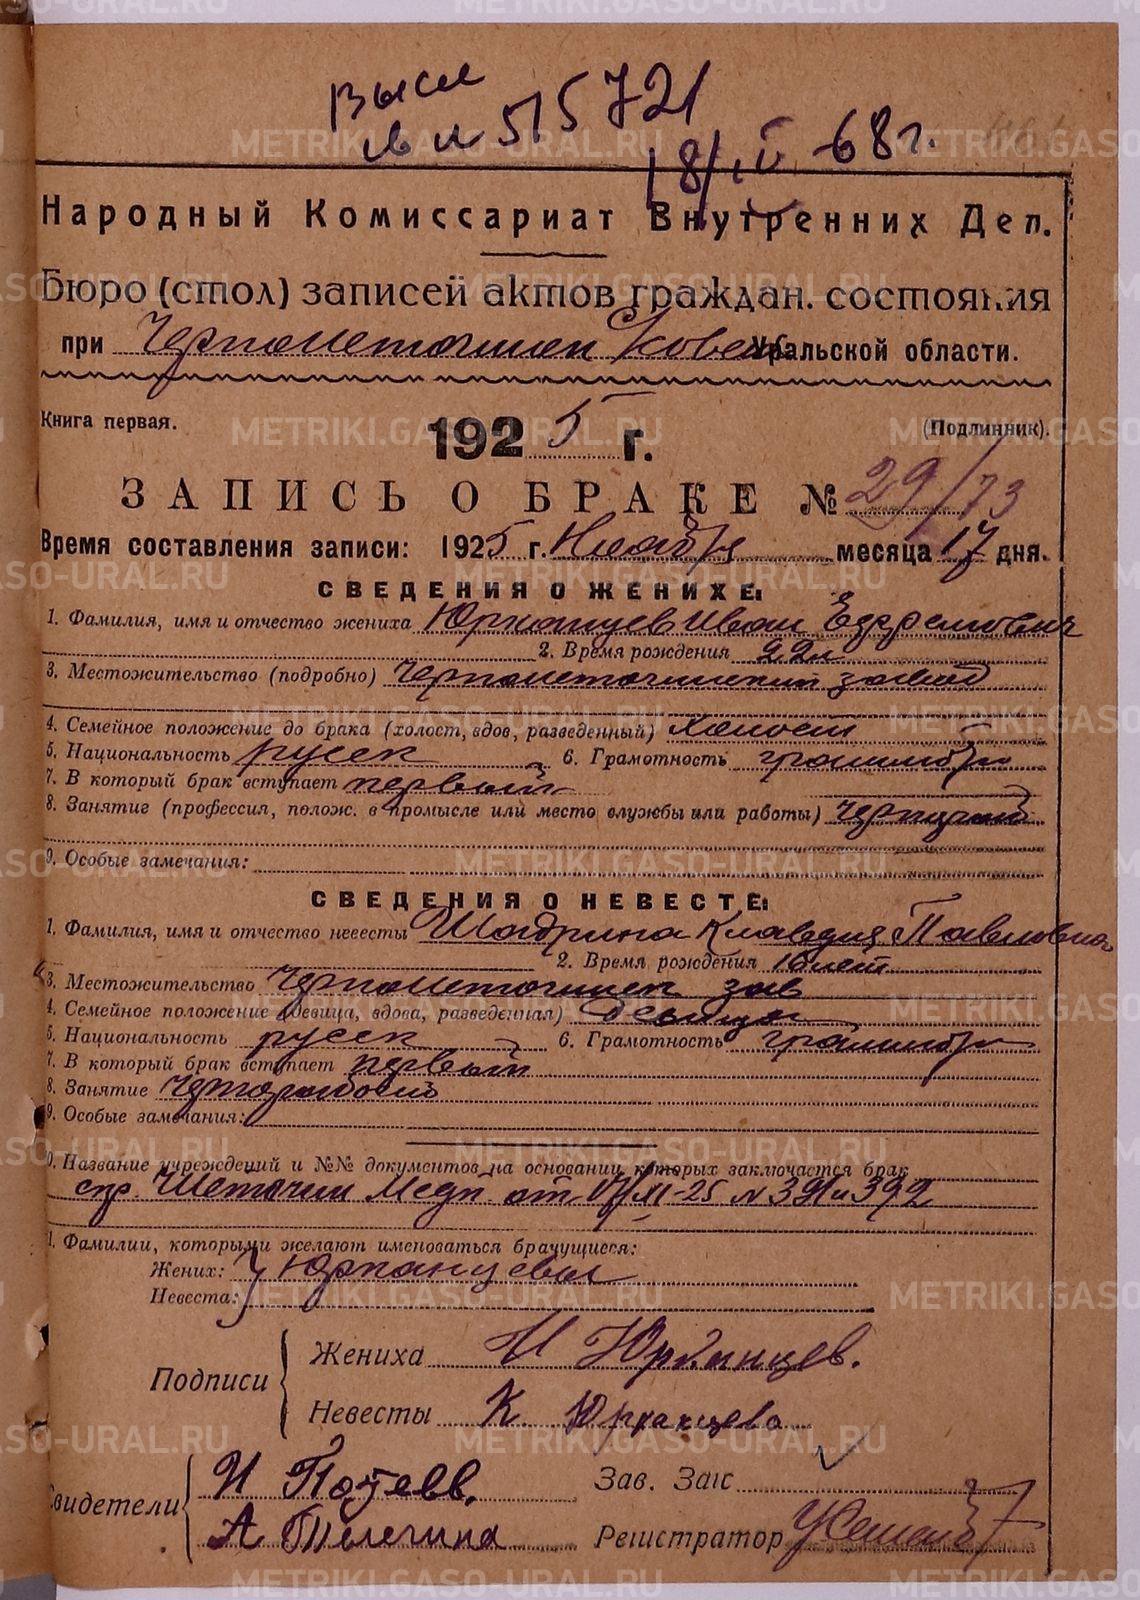 Высл
св и 515721
18/IV-68 г.
Народный Комиссариат Внутренних Дел.
Бюро (стол) записей актов граждан. состояния
при Черноисточинск Уральской области.
Книга первая. 1925 г. (Подлинник).
ЗАПИСЬ О БРАКЕ № 29/73
Время составления записи: 1925 г. Ноября месяца 17 дня.
СВЕДЕНИЯ О ЖЕНИХЕ:
1. Фамилия, имя и отчество жениха Юрманцев Иван
2. Время рождения 22 л
3. Местожительство (подробно) Черноисточинский завод
4. Семейное положение до брака (холост, вдов, разведенный) холост
5. Национальность русск 6. Грамотность грамотн
7. В который брак вступает первый
8. Занятие (профессия, полож. в промысле или место службы или работы)
9. Особые замечания:
СВЕДЕНИЯ О НЕВЕСТЕ:
1. Фамилия, имя и отчество невесты Шадрина Клавдия Павловна
2. Время рождения 16 лет
3. Местожительство Черноисточинск зав
4. Семейное положение (девица, вдова, разведенная) девица
5. Национальность русск 6. Грамотность грамотн
7. В который брак вступает первый
8. Занятие чернорабоч
9. Особые замечания:
0. Название учреждений и №№ документов на основании которых заключается брак
спр. от XI-25 N 391 и 392
1. Фамилии, которыми желают именоваться брачущиеся:
Жених: Юрманцевы
Невеста:
Подписи
Жениха И Юрманцев.
Невесты К. Юрманцева
Свидетели
И
А Телегина
Зав. Загс
Регистратор
METRIKI.GASO-URAL.RU